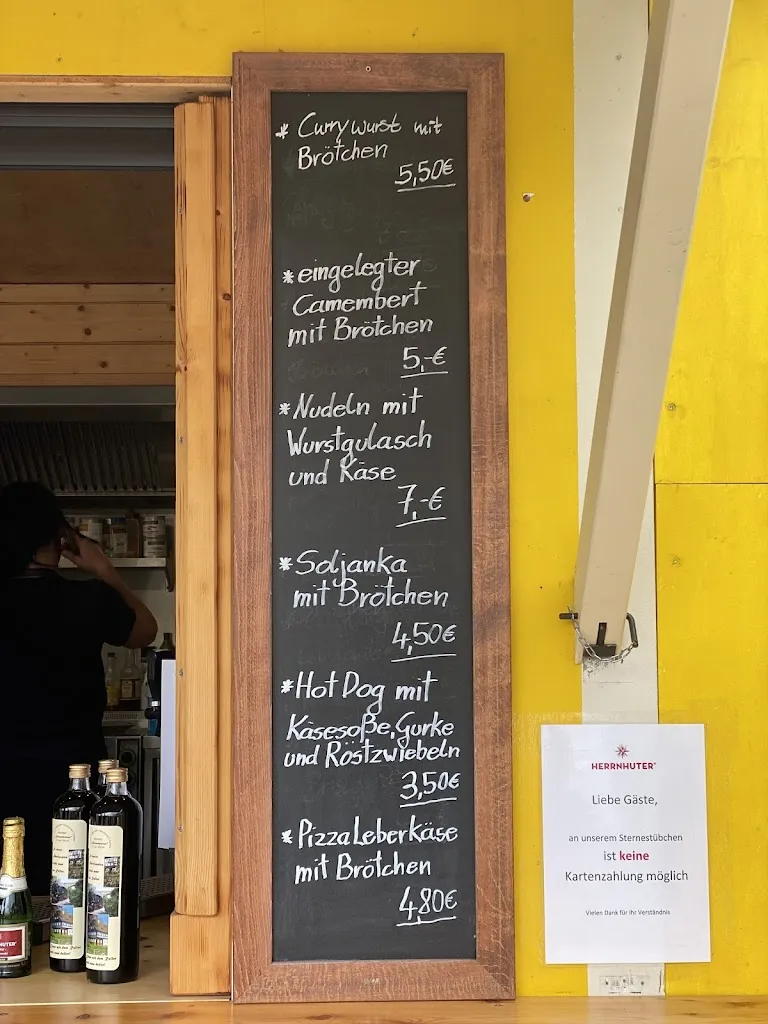 * Currywurst mit
Brötchen
5,50€
* eingelegter
Camembert
mit Brötchen
5,-€
* Nudeln mit
Wurstgulasch
und Käse
7,-€
* Soljanka
mit Brötchen
4,50€
* Hot Dog mit
Käsesoße, Gurke
und Röstzwiebeln
3,50€
* Pizza Leberkäse
mit Brötchen
4,80€
HERRNHUTER
Liebe Gäste,
an unserem Sternestübchen
ist keine
Kartenzahlung möglich
Vielen Dank für Ihr Verständnis